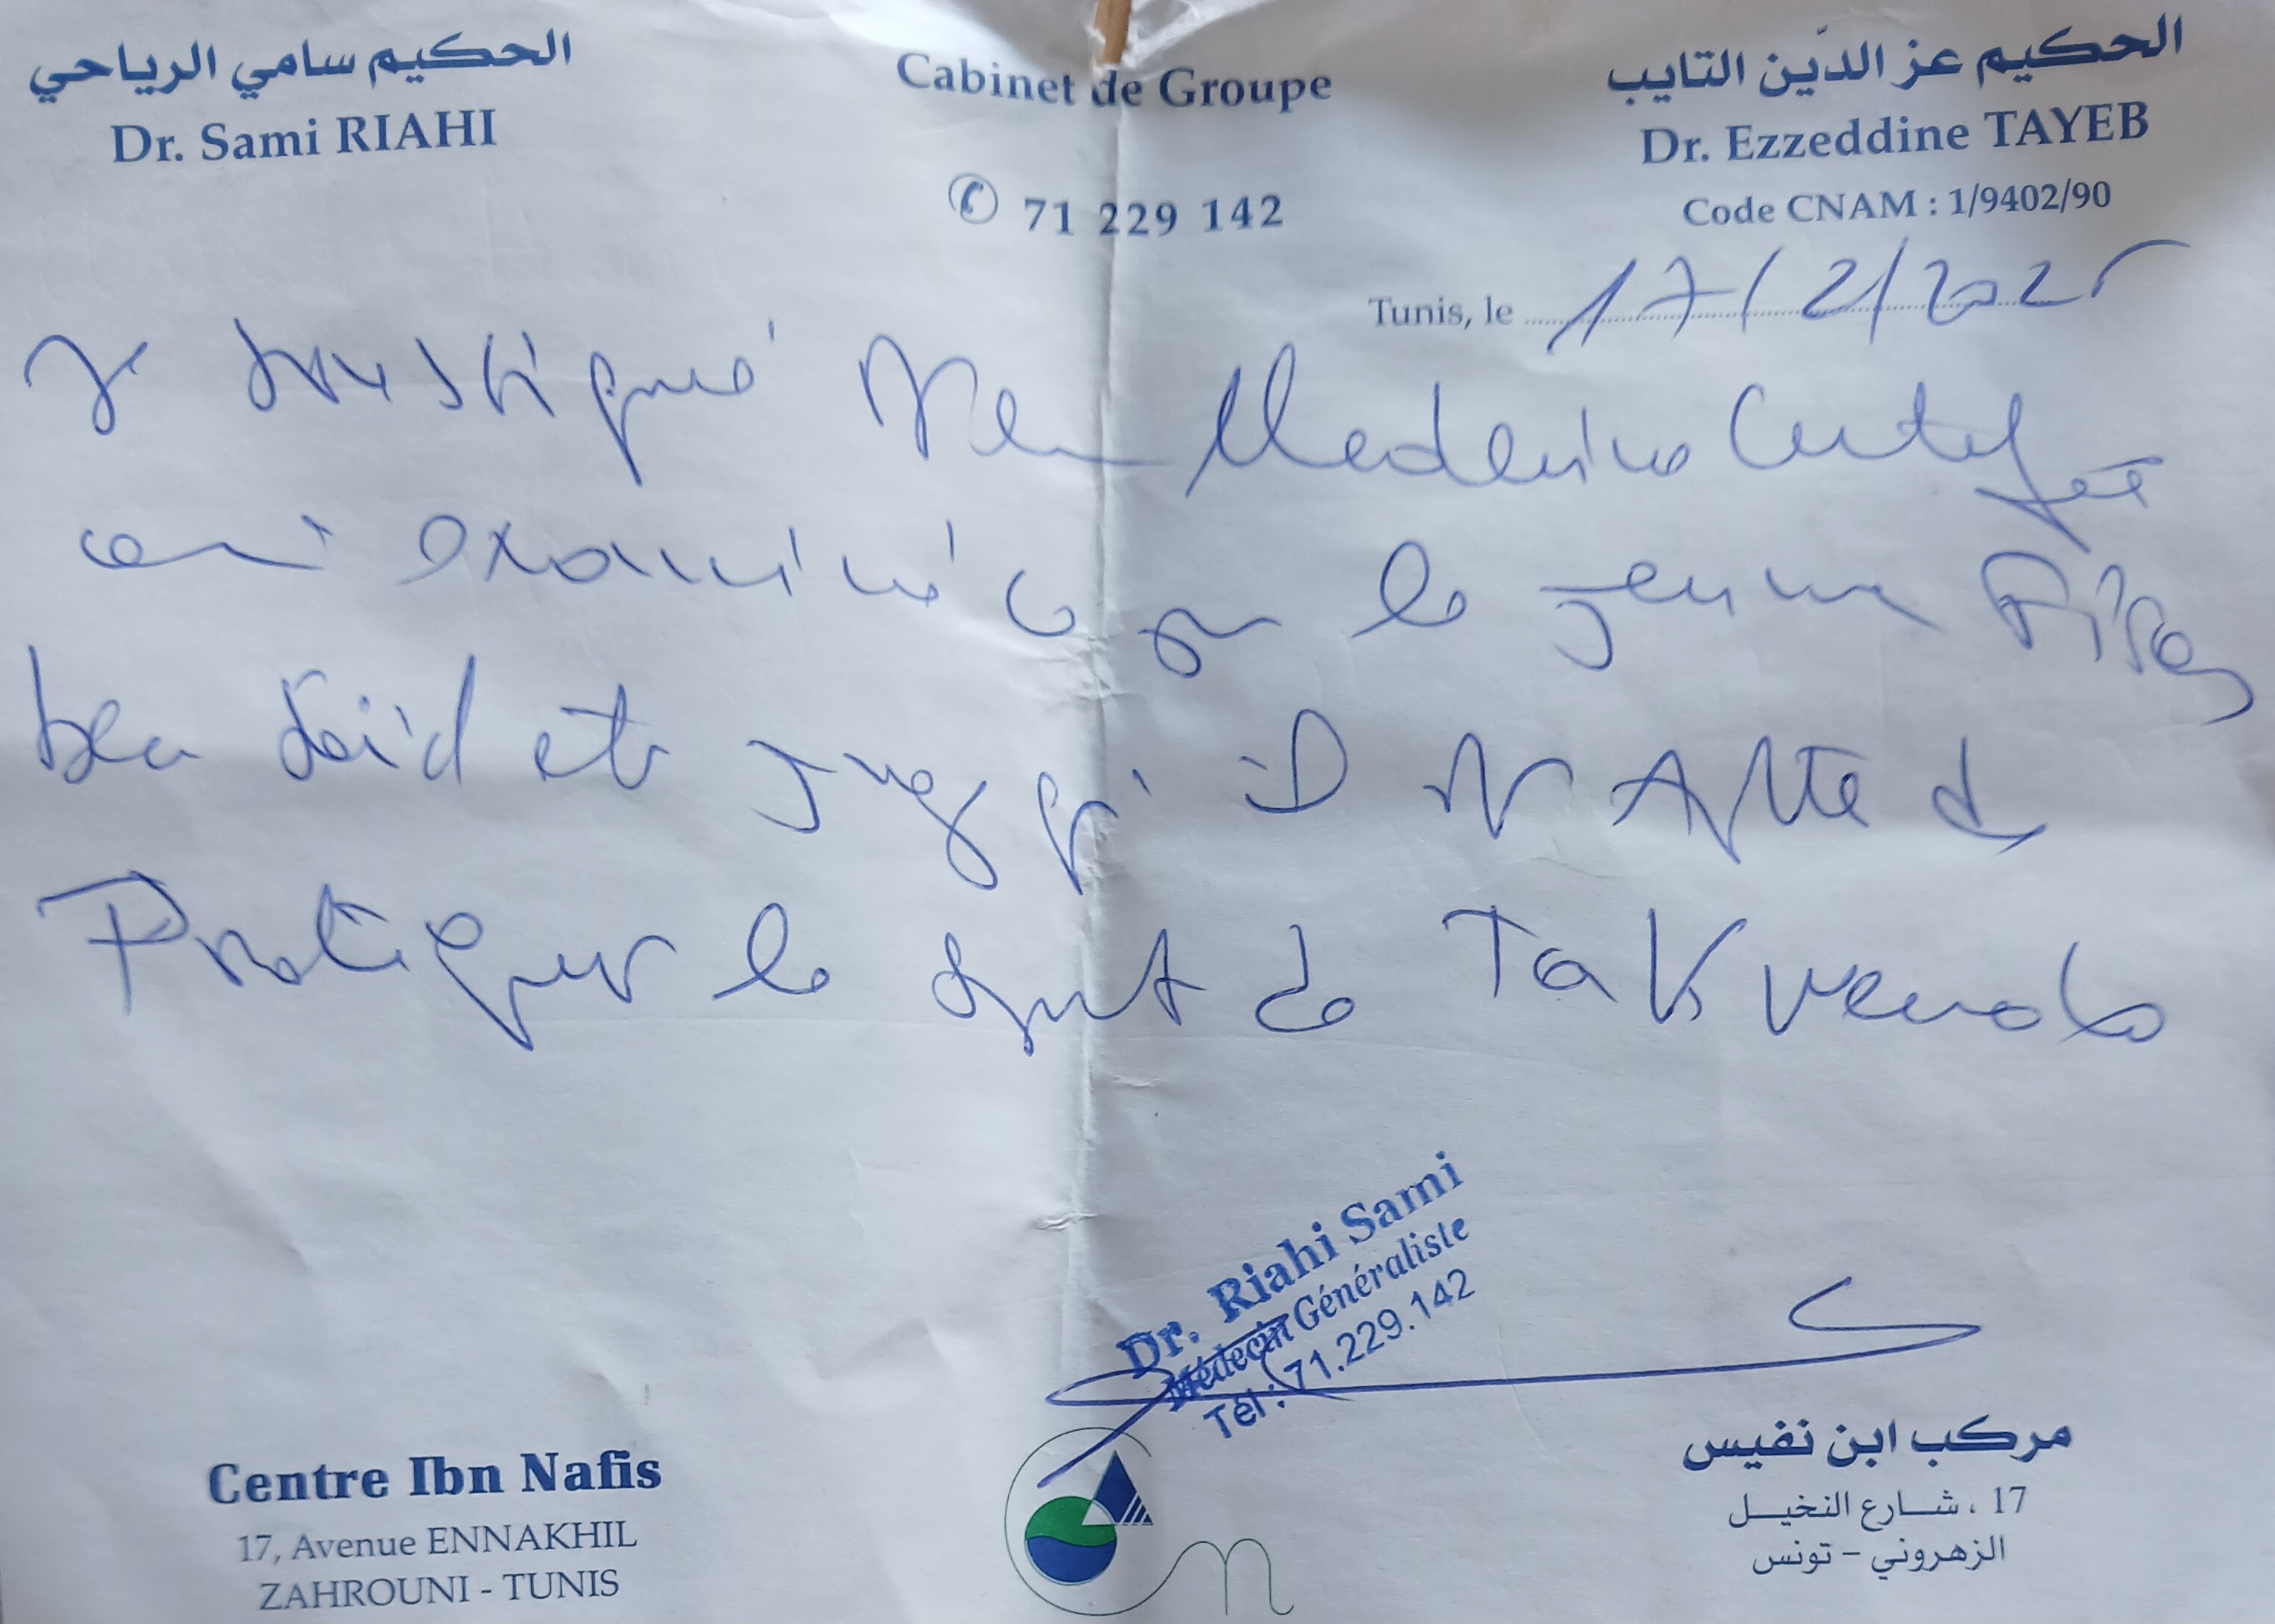 الحكيم سامي الرياحي
Dr. Sami RIAHI
Cabinet de Groupe
✆ 71 229 142
الحكيم عز الدّين التايب
Dr. Ezzeddine TAYEB
Code CNAM : 1/9402/90
Tunis, le 17/2/2025
Je Médecin Certifie
examiné ce jour le jeune
ben Said et qu'il est Apte à
Pratiquer le sport de Takwendo
Dr. Riahi Sami
Médecin Généraliste
Tél : 71.229.142
Centre Ibn Nafis
17, Avenue ENNAKHIL
ZAHROUNI - TUNIS
مركب ابن نفيس
17 ، شـــارع النخيـــل
الزهروني - تونس